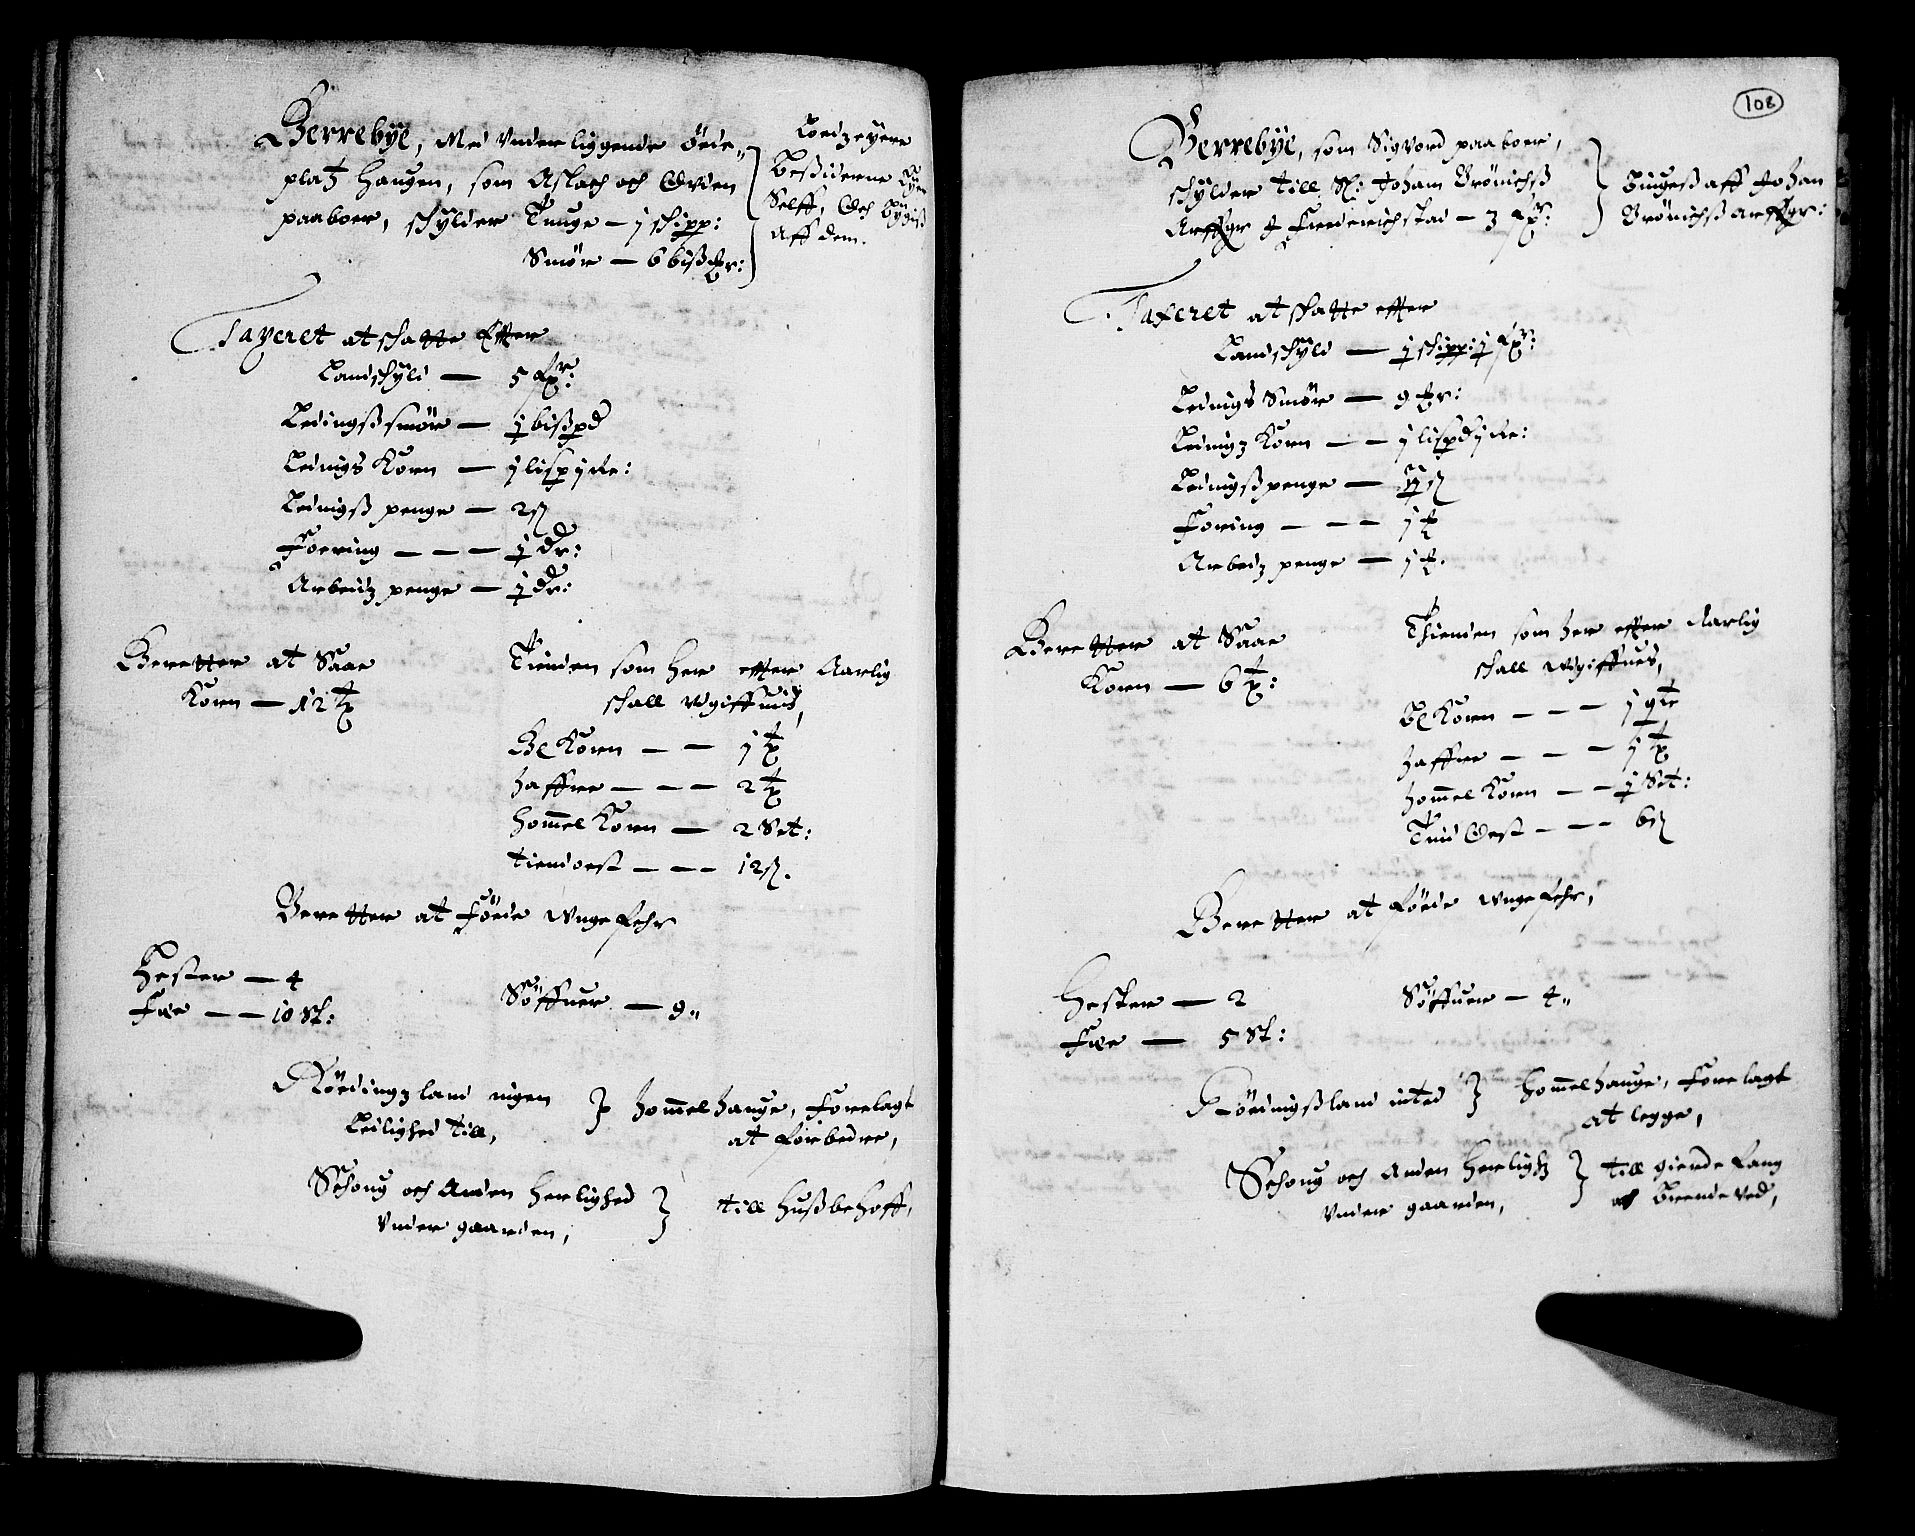 Berrebÿe, Med Vnderliggende Øede„
platz Haugen, som Aslach och Gvden
paaboer, schÿlder Tunge — j schipp:
Smør — 6 bißmr:
Lodzeyere
Beßiderne
Selff, Och bÿgis
Aff dem.
Taxeret at schatte Effter
Landschÿld — 5 fr:
Ledingßsmør — j bißpd
Ledings Korn — j lisp j fr:
Ledingß penge — 2 ß
Foering — — — j dr:
Arbeidz penge — j dr:
Beretter at Saae
Korn — 12 t
Tienden som her effter Aarlig
schall Udgiffuis,
Bl Korn — — j t
Haffre — — — 2 t
Hommel Korn — 2 Set:
tiendost — — — 12 ß.
Beretter at Føede Ungefehr
Hester — 4
Fæe — — 10 St:
Søffuer — 9„
Rødingz land ingen
Leilighed till,
Hommelhauge, Forelagt
at Forbedre,
Schoug och Anden Herlighed
Vnder gaarden,
till Hußbehoff,
108
Berrebÿe, som Sigvord paaboer,
schÿlder till Sl: Johan Brønichß
Arffgr I Frederichstad — 3 fr:
Bÿges aff Johan
Brønichß arffgr:
Taxeret at schatte effter
Landschÿld — j schipp: j fr:
Ledings Smør — 9 mr:
Ledingz Korn — — j lispd j fr:
Ledingßpenge — ß
Foring — — — j
Arbeidz penge — j
Beretter at Saae
Korn — 6 t:
Thienden som her effter Aarlig
schall Udgiffues,
Bl Korn — — — j qte
Haffre — — — j t
Hommel Korn — — j Set:
Tiend Ost — — — 6 ß
Beretter at Føede Ungefehr,
Hester — 2
Fæe — 5 St:
Søffuer — 4„
Rødingßland inted
Hommelhauge, Forelagt
at legge,
Schoug och Anden Herlighz
Vnder gaarden,
till gierde Fang
och Brende ved,